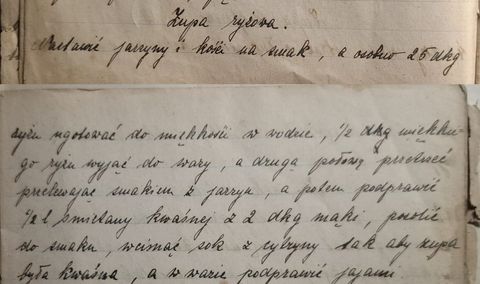 Zupa ryżowa.
Nastawić jarzyny i kości na smak, a osobno 25 dkg
ryżu ugotować do miękkości w wodzie, 1/2 dkg miękku-
go ryżu wyjąć do wazy, a drugą połowę przetrzeć
przelewając smakiem z jarzyn, a potem podprawić
1/2 l śmietany kwaśnej z 2 dkg mąki, posolić
do smaku, wcisnąć sok z cytryny tak aby zupa
była kwaśna, a w wazie podprawić jajami.